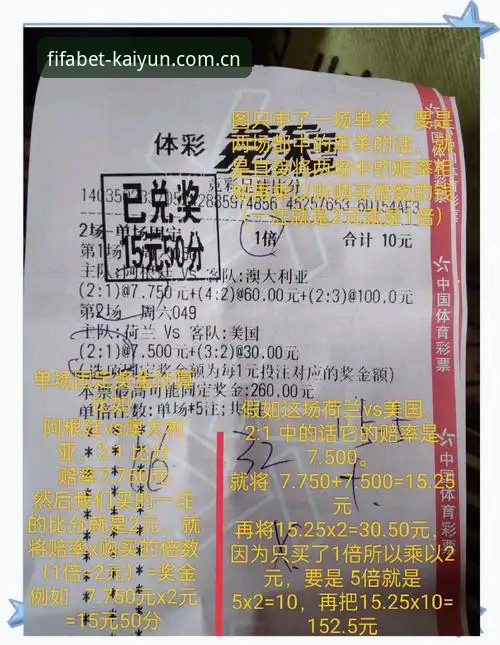 fifabet-kaiyun.com.cn
图只中了一场单关，要是
两场都中的单关的话，就
是直接将两场中的赔率相
（一注就是2元就是1倍）
体彩
已兑奖
15元50分
2场-单场固定
1倍
合计 10元
第1场
主队:阿根廷 Vs 客队:澳大利亚
(2:1)@7.750元+(4:2)@60.00元+(2:3)@100.0元
第2场 周六049
主队:荷兰 Vs 客队:美国
(2:1)@7.500元+(3:2)@30.00元
(选项固定奖金额为每1元投注对应的奖金额)
本票最高可能固定奖金:260.00元
单场固定奖金计算
阿根廷vs澳大利
亚 2:1 比分
赔率7.750元
然后我们买的一注
的比分就是2元，就
将赔率x购买的倍数
（1倍=2元）=奖金
例如 7.750元x2元
=15元50分
假如这场荷兰vs美国
2:1 中的话它的赔率是
7.500。
就将 7.750+7.500=15.25
元
再将15.25x2=30.50元，
因为只买了1倍所以乘以2
元，要是 5倍就是
5x2=10，再把15.25x10=
152.5元
中国体育彩票
中国体育彩票